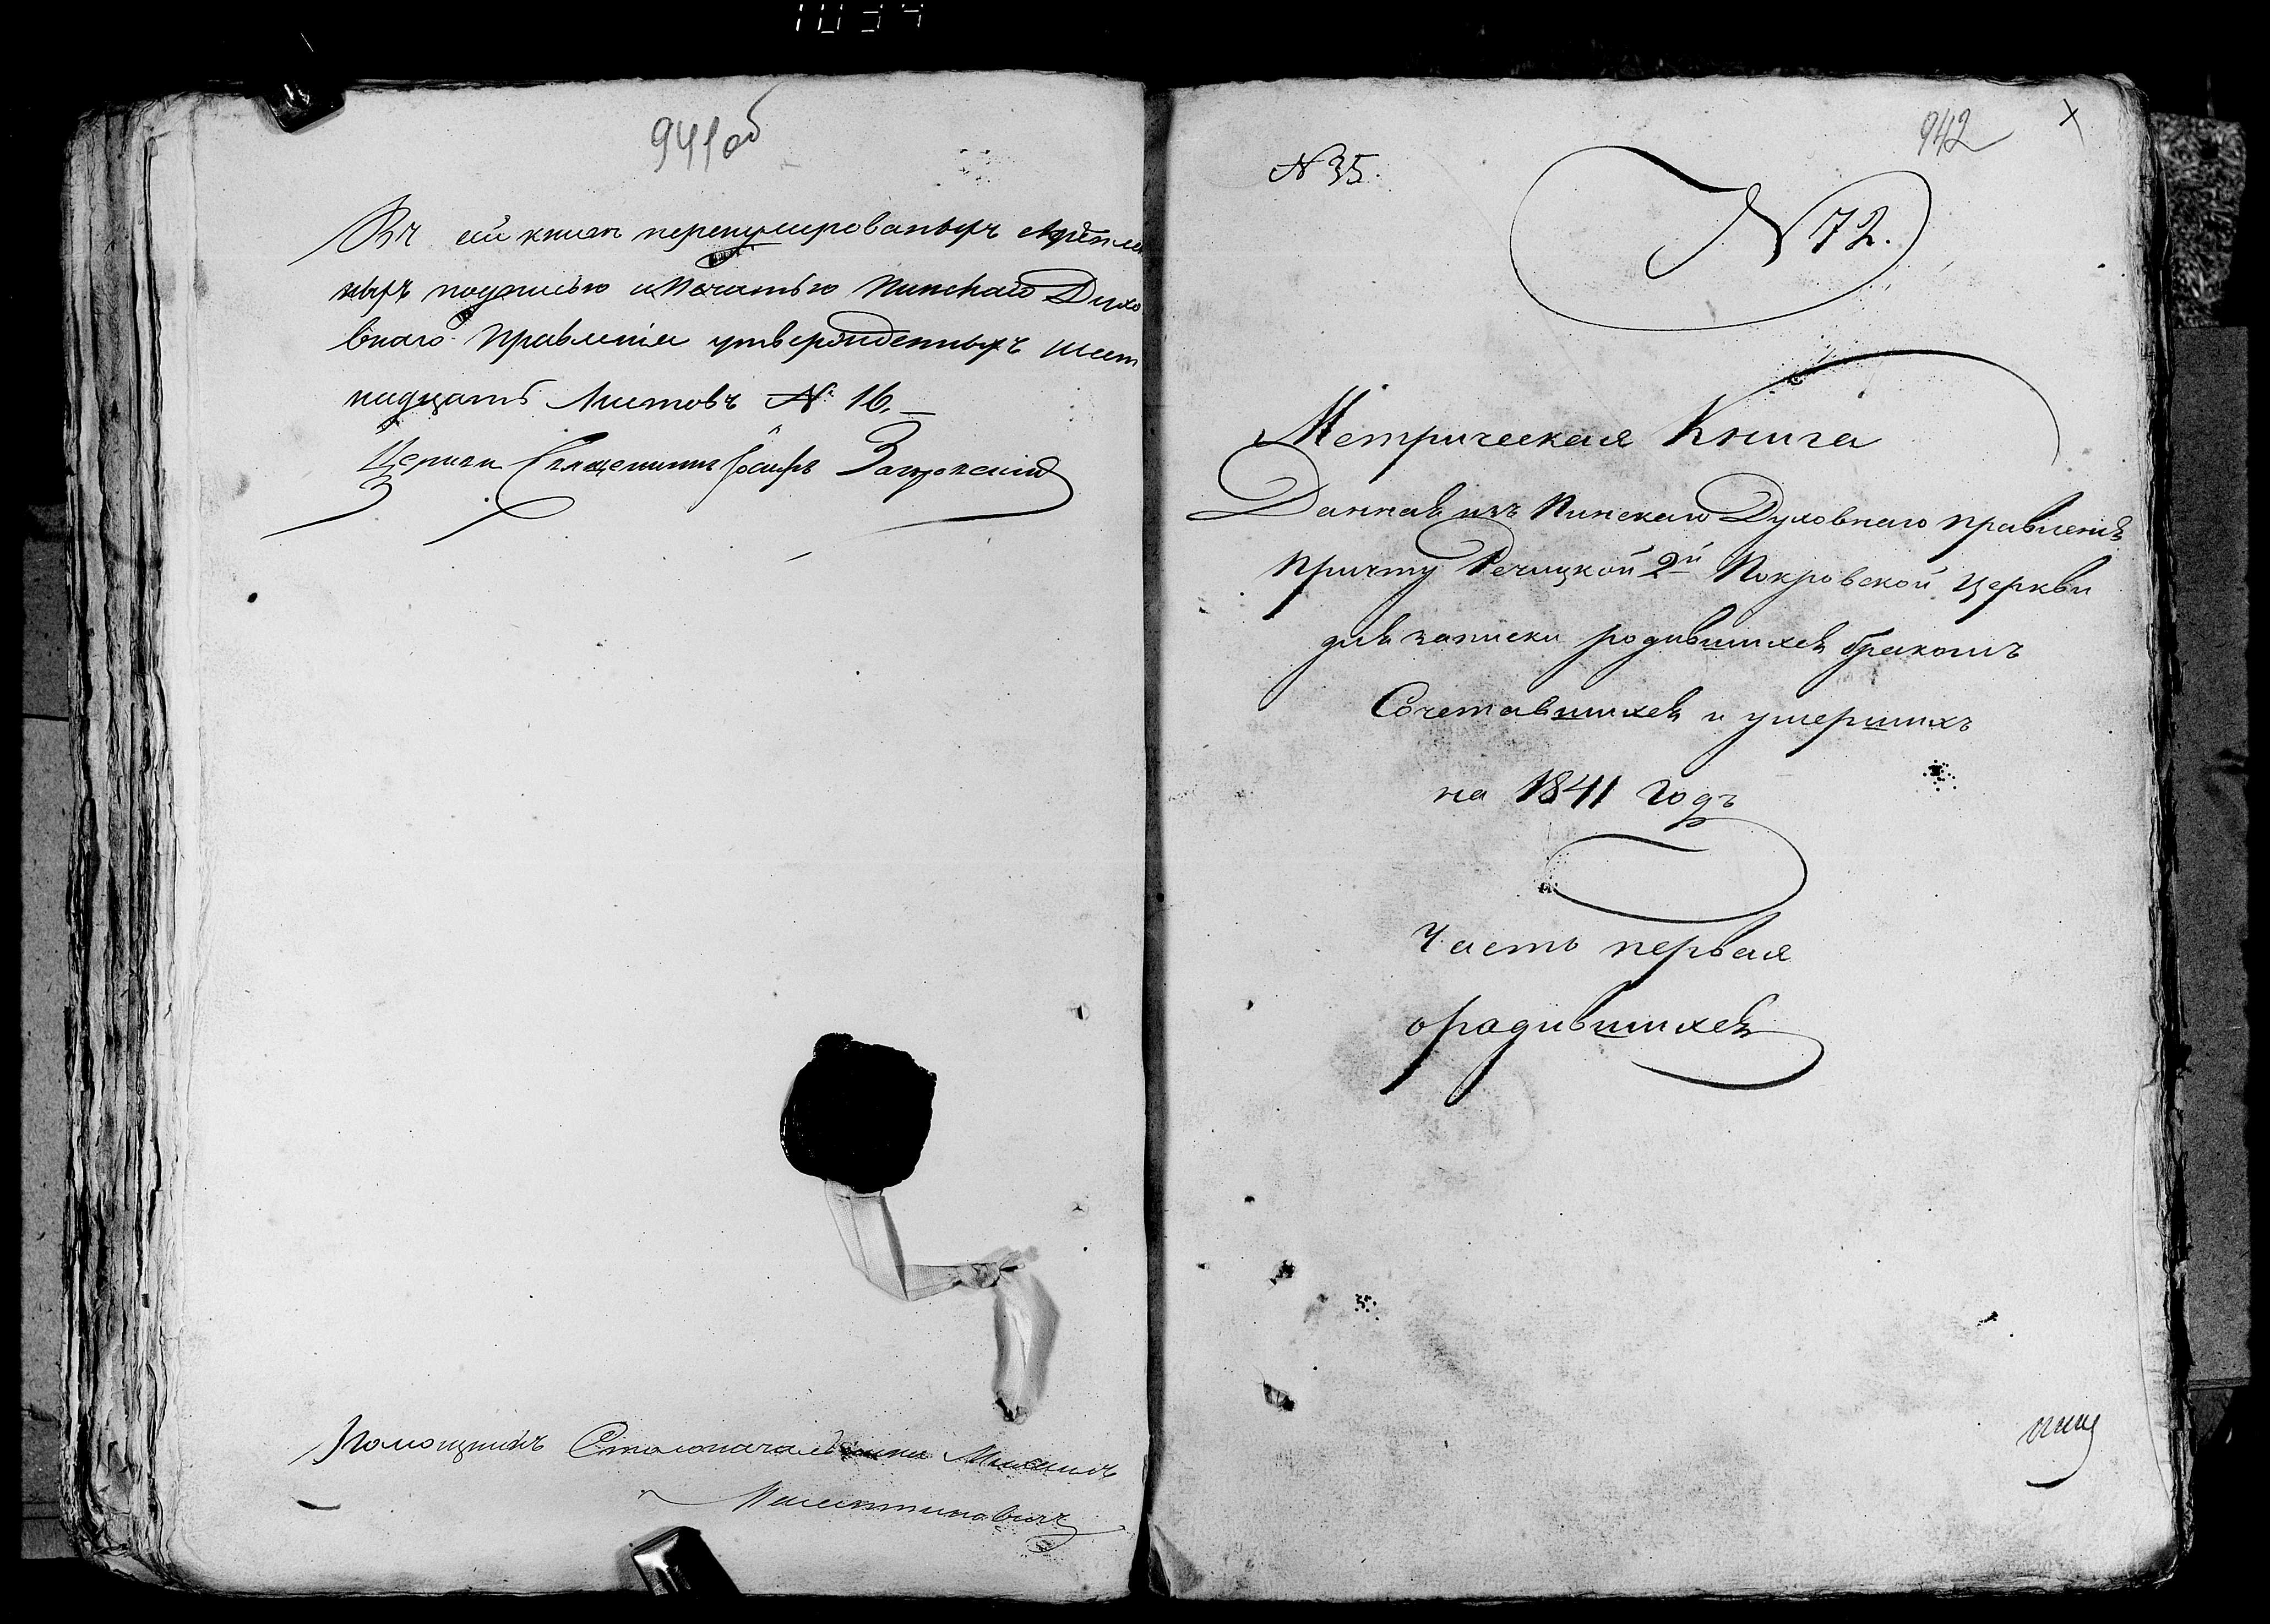 1034
941об
Въ сей книги перенумерованыхъ скрѣплен
ныхъ подписью и Печатью Пинскаго Духо
внаго Правленія утвержденныхъ шест
надцать Листовъ № 16.
Церкви Священникъ Іосифъ
Помощникъ Столоначальника Михаилъ
942
х
N 35.
N 72.
Метрическая Книга
Данная изъ Пинскаго Духовнаго правленія
причту Речицкой 2й Покровской Церкви
для записки родившихся бракомъ
Сочетавшихся и умершихъ
на 1841 Годъ
Часть первая
о радившихся